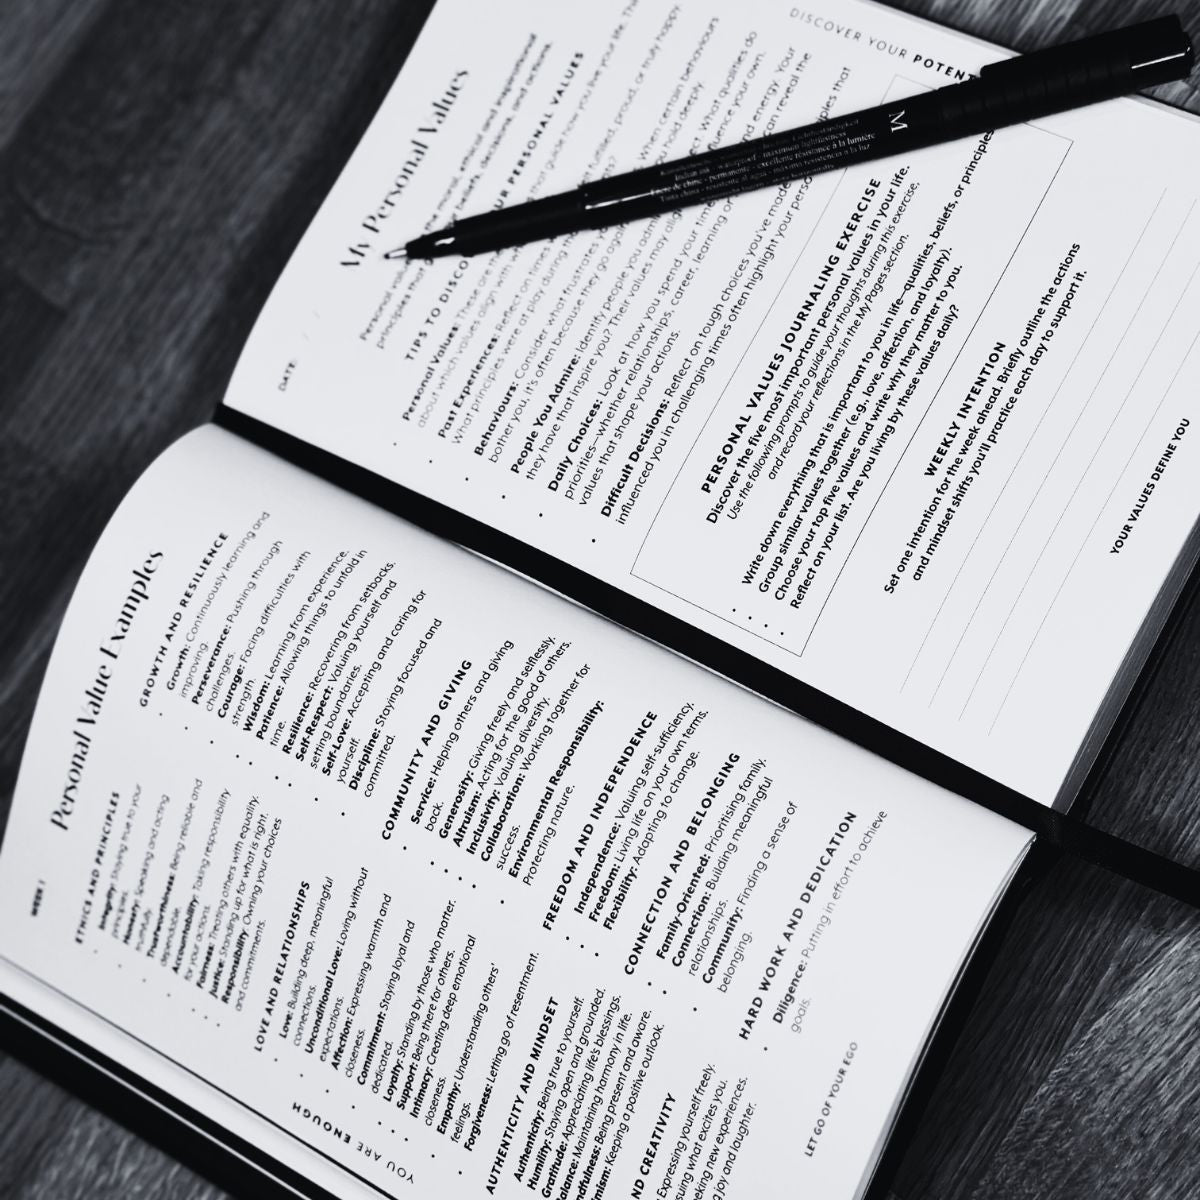 WEEK 1
Personal Value Examples
ETHICS AND PRINCIPLES
Integrity: Staying true to your
principles.
Honesty: Speaking and acting
truthfully.
Trustworthiness: Being reliable and
dependable.
Accountability: Taking responsibility
for your actions.
Fairness: Treating others with equality.
Justice: Standing up for what is right.
Responsibility: Owning your choices
and commitments.
LOVE AND RELATIONSHIPS
Love: Building deep, meaningful
connections.
Unconditional Love: Loving without
expectations.
Affection: Expressing warmth and
closeness.
Commitment: Staying loyal and
dedicated.
Loyalty: Standing by those who matter.
Support: Being there for others.
Intimacy: Creating deep emotional
closeness.
Empathy: Understanding others'
feelings.
Forgiveness: Letting go of resentment.
AUTHENTICITY AND MINDSET
Authenticity: Being true to yourself.
Humility: Staying open and grounded.
Gratitude: Appreciating life's blessings.
alance: Maintaining harmony in life.
ndfulness: Being present and aware.
mism: Keeping a positive outlook.
ND CREATIVITY
Expressing yourself freely.
suing what excites you.
eking new experiences.
g joy and laughter.
GROWTH AND RESILIENCE
Growth: Continuously learning and
improving.
Perseverance: Pushing through
challenges.
Courage: Facing difficulties with
strength.
Wisdom: Learning from experience.
Patience: Allowing things to unfold in
time.
Resilience: Recovering from setbacks.
Self-Respect: Valuing yourself and
setting boundaries.
Self-Love: Accepting and caring for
yourself.
Discipline: Staying focused and
committed.
COMMUNITY AND GIVING
Service: Helping others and giving
back.
Generosity: Giving freely and selflessly.
Altruism: Acting for the good of others.
Inclusivity: Valuing diversity.
Collaboration: Working together for
success.
Environmental Responsibility:
Protecting nature.
FREEDOM AND INDEPENDENCE
Independence: Valuing self-sufficiency.
Freedom: Living life on your own terms.
Flexibility: Adapting to change.
CONNECTION AND BELONGING
Family-Oriented: Prioritising family.
Connection: Building meaningful
relationships.
Community: Finding a sense of
belonging.
HARD WORK AND DEDICATION
Diligence: Putting in effort to achieve
goals.
YOU ARE ENOUGH
LET GO OF YOUR EGO
DATE:
My Personal Values
Personal the moral, ethical and inspirational
principles that beliefs, decisions, and actions.
TIPS TO DISCO UR PERSONAL VALUES
Personal Values: These are that guide how you live your life. Th
about which values align with
Past Experiences: Reflect on times fulfilled, proud, or truly happy.
What principles were at play during
Behaviours: Consider what frustrates When certain behaviours
bother you, it's often because they go again you hold deeply.
People You Admire: Identify people you admi What qualities do
they have that inspire you? Their values may alig fluence your own.
Daily Choices: Look at how you spend your time nd energy. Your
priorities—whether relationships, career, learning or can reveal the
values that shape your actions.
Difficult Decisions: Reflect on tough choices you've made ciples that
influenced you in challenging times often highlight your perso
PERSONAL VALUES JOURNALING EXERCISE
Discover the five most important personal values in your life.
Use the following prompts to guide your thoughts during this exercise,
and record your reflections in the My Pages section.
Write down everything that is important to you in life—qualities, beliefs, or principles
Group similar values together (e.g., love, affection, and loyalty).
Choose your top five values and write why they matter to you.
Reflect on your list. Are you living by these values daily?
WEEKLY INTENTION
Set one intention for the week ahead. Briefly outline the actions
and mindset shifts you'll practice each day to support it.
YOUR VALUES DEFINE YOU
DISCOVER YOUR POTENT
M
Indian ink - waterproof - maximum lightfastness
Encre de chine - permanente - excellente résistance à la lumière
Tinta china - resistente al agua - máxima resistencia a la luz